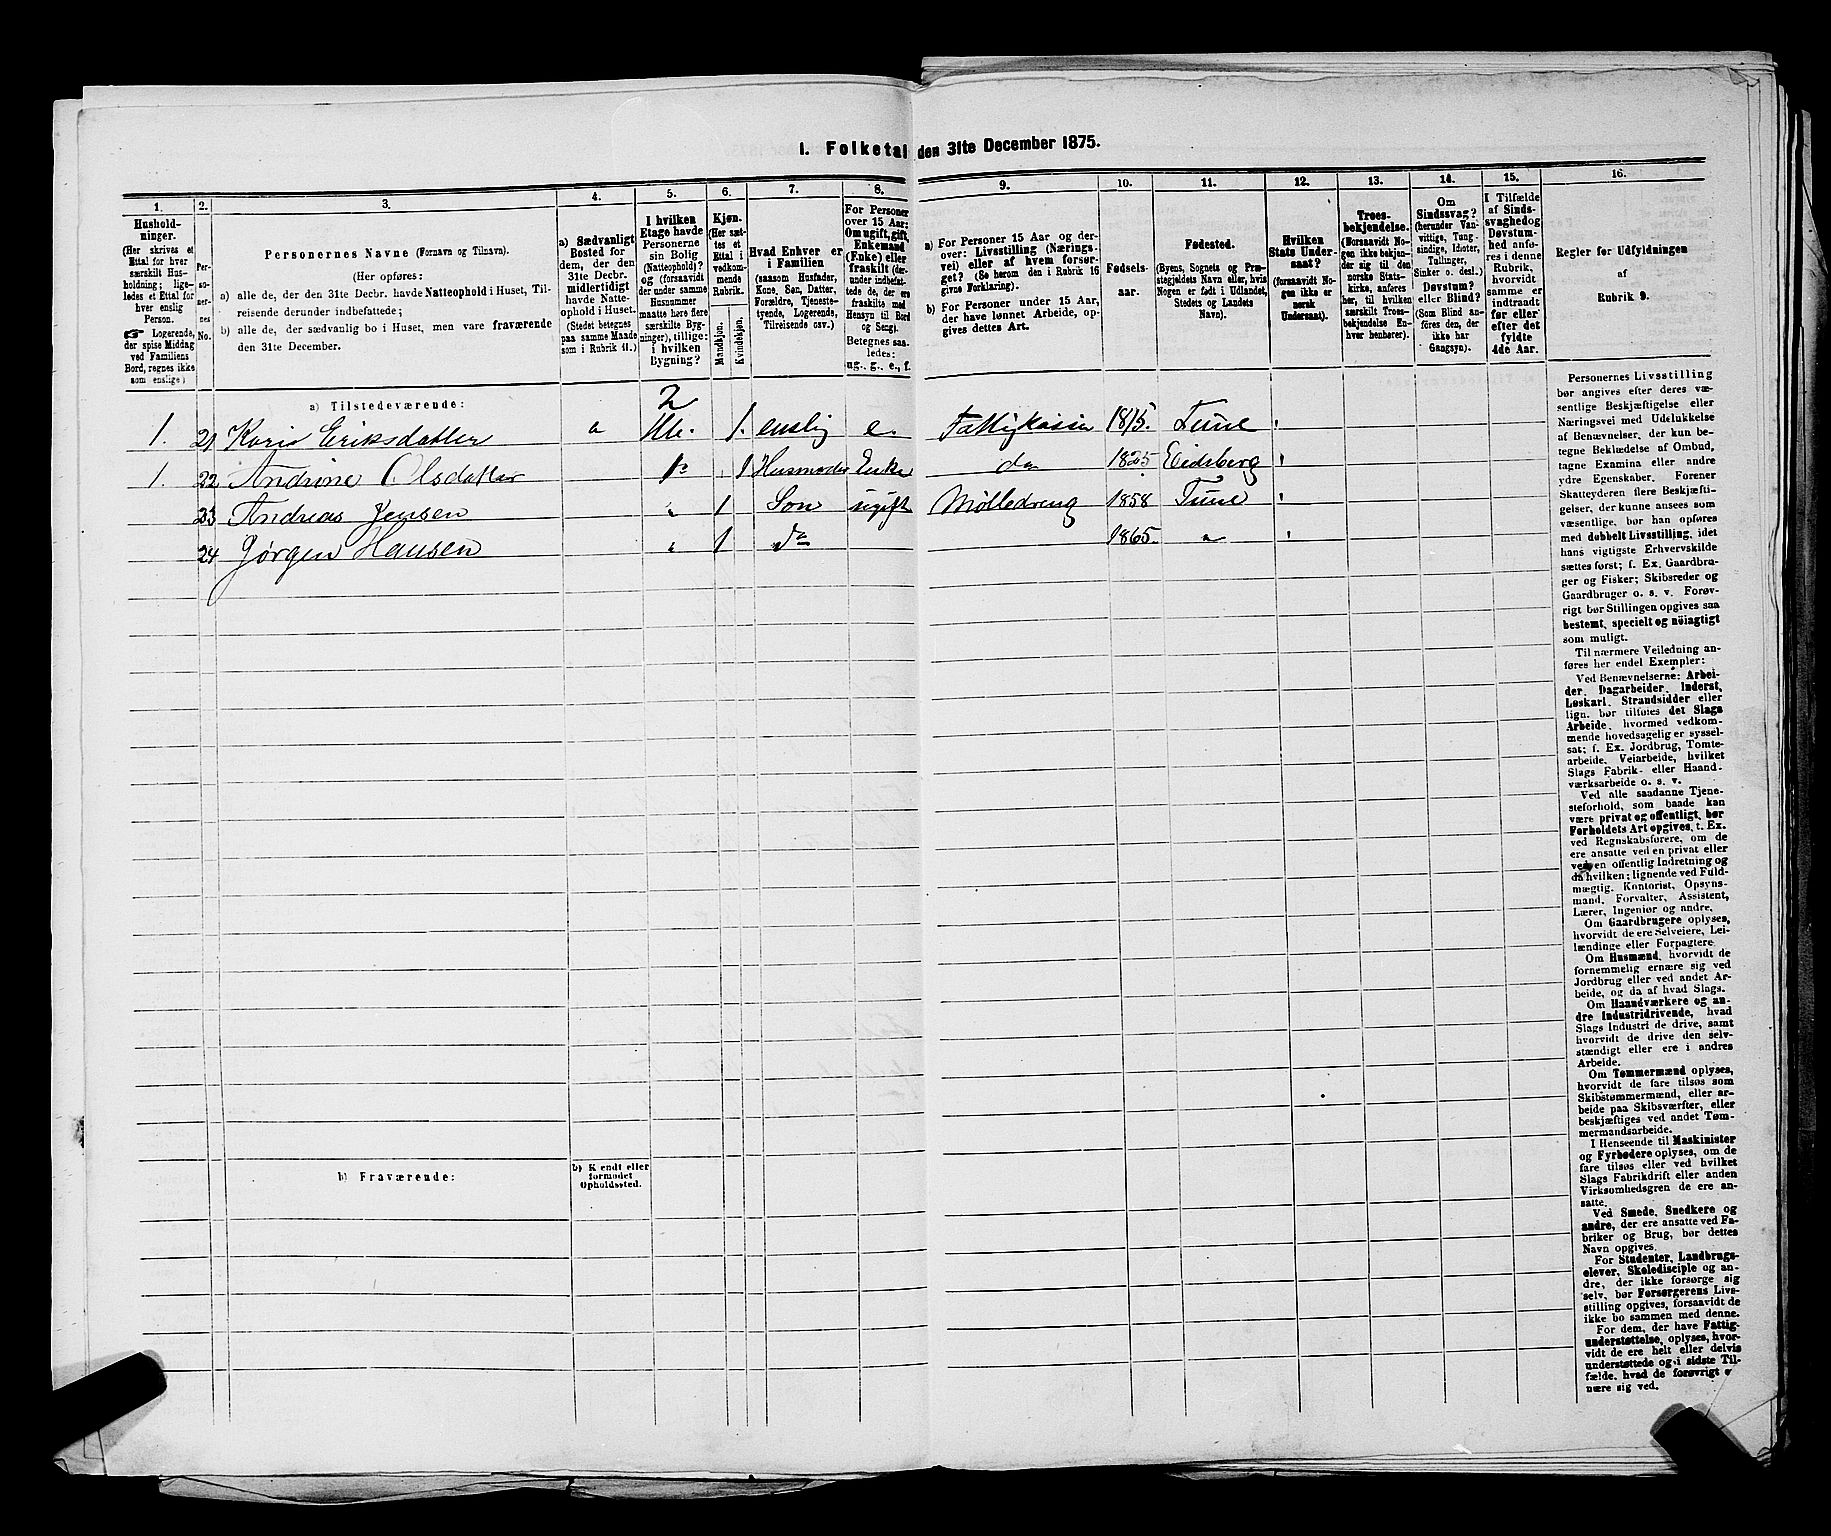 1. Folketal den 31te December 1875.
1. 2. 3. 4. 5. 6. 7. 8. 9. 10. 11. 12. 13. 14. 15. 16.
Hushold-
ninger.
(Her skrives et
Ettal for hver
særskilt Hus-
holdning; lige-
ledes et Ettal for
hver enslig
Person.
☛ Logerende,
der spise Middag
ved Familiens
Bord, regnes ikke
som enslige)
Per-
so-
ner-
nes
No.
Personernes Navne (Fornavn og Tilnavn).
(Her opføres:
a) alle de, der den 31te Decbr. havde Natteophold i Huset, Til-
reisende derunder indbefattede;
b) alle de, der sædvanlig bo i Huset, men vare fraværende
den 31te December.
a) Sædvanligt
Bosted for
dem, der den
31te Decbr.
midlertidigt
havde Natte-
ophold i Huset.
(Stedet betegnes
paa samme Maade
som i Rubrik 11.)
I hvilken
Etage havde
Personerne
sin Bolig
(Natteophold)?
og (forsaavidt
der under samme
Husnummer
maatte høre flere
særskilte Byg-
ninger), tillige:
i hvilken
Bygning?
Kjøn.
(Her sæt-
tes et
Ettal i
vedkom-
mende
Rubrik.
Mandkjøn.
Kvindekjøn.
Hvad Enhver er
i Familien
(saasom Husfader,
Kone, Søn, Datter,
Forældre, Tjeneste-
tyende, Logerende,
Tilreisende osv.).
For Personer
over 15 Aar:
Om ugift, gift,
Enkemand
(Enke) eller
fraskilt (der-
under indbefat-
tede de, der ere
fraskilte med
Hensyn til Bord
og Seng).
Betegnes saa-
ledes:
ug., g., e., f.
a) For Personer 15 Aar og der-
over: Livsstilling (Nærings-
vei) eller af hvem forsør-
get? (Se herom den i Rubrik 16
givne Forklaring).
b) For Personer under 15 Aar,
der have lønnet Arbeide, op-
gives dettes Art.
Fødsels-
aar.
Fødested.
(Byens, Sognets og Præ-
stegjeldets Navn eller, hvis
Nogen er født i Udlandet,
Stedets og Landets
Navn).
Hvilken
Stats Under-
saat?
(forsaavidt No-
gen ikke er
norsk
Undersaat).
Troes-
bekjendelse.
(Forsaavidt No-
gen ikke bekjen-
der sig til den
norske Stats-
kirke, anføres
her, til hvilken
særskilt Troes-
bekjendelse En-
hver henhører).
Om
Sindssvag?
(herunder Van-
vittige, Tung-
sindige, Idioter,
Tullinger,
Sinker o. desl.)
Døvstum?
eller Blind?
(Som Blind an-
føres den, der
ikke har
Gangsyn).
I Tilfælde
af Sinds-
svaghed og
Døvstum-
hed anfø-
res i denne
Rubrik,
hvorvidt
samme er
indtraadt
før eller
efter det
fyldte
4de Aar.
Regler for Udfyldningen
af
Rubrik 9.
a) Tilstedeværende:
2
1. 21 Karis Eriksdatter 1. enslig e. Fattigkassen 1815. Tune
1. 22 Andrine Olsdatter 1 Husmoder Enke do 1825 Eidsberg
23 Andreas Jensen " 1 Søn ugift Mølledreng 1858 Tune
24 Jørgen Hansen " 1 do 1865. "
b) Fraværende:
b) Kjendt eller
formodet
Opholdssted.
Personernes Livsstilling
bør angives efter deres væ-
sentlige Beskjæftigelse eller
Næringsvei med Udelukkelse
af Benævnelser, der kun be-
tegne Beklædelse af Ombud,
tagne Examina eller andre
ydre Egenskaber. Forener
Skatteyderen flere Beskjæfti-
gelser, der kunne ansees som
væsentlige, bør han opføres
med dobbelt Livsstilling, idet
hans vigtigste Erhvervskilde
sættes først; f. Ex. Gaardbru-
ger og Fisker; Skibsreder og
Gaardbruger o. s. v. Forøv-
rigt bør Stillingen opgives saa
bestemt, specielt og nöiagtigt
som muligt.
Til nærmere Veiledning an-
føres her endel Exempler:
Ved Benævnelserne: Arbei-
der, Dagarbeider, Inderst,
Løskarl, Strandsidder eller
lign. bør tilføies det Slags
Arbeide, hvormed vedkom-
mende hovedsagelig er syssel-
sat; f. Ex. Jordbrug, Tomte-
arbeide, Veiarbeide, hvilket
Slags Fabrik- eller Haand-
værksarbeide o. s. v.
Ved alle saadanne Tjene-
steforhold, som baade kan
være privat og offentligt, bør
Forholdets Art opgives, t. Ex.
ved Regnskabsførere, om de
ere ansatte ved en privat eller
ved en offentlig Indretning og
da hvilken; lignende ved Fuld-
mægtig, Kontorist, Opsyns-
mand, Forvalter, Assistent,
Lærer, Ingeniør og andre.
Om Gaardbrugere oplyses,
hvorvidt de ere Selveiere, Lei-
lændinge eller Forpagtere.
Om Husmænd, hvorvidt de
fornemmelig ernære sig ved
Jordbrug eller ved andet Ar-
beide, og da af hvad Slags.
Om Haandværkere og an-
dre Industridrivende, hvad
Slags Industri de drive, samt
hvorvidt de drive den selv-
stændigt eller ere i andres
Arbeide.
Om Tømmermænd oplyses,
hvorvidt de fare tilsøs som
Skibstømmermænd, eller ar-
beide paa Skibsværfter, eller
beskjæftiges ved andet Tøm-
mermandsarbeide.
I Henseende til Maskinister
og Fyrbødere oplyses, om de
fare tilsøs eller ved hvilket
Slags Fabrikdrift eller anden
Virksomhedsgren de ere an-
satte.
Ved Smede, Snedkere og
andre, der ere ansatte ved Fa-
briker og Brug, bør dettes
Navn opgives.
For Studenter, Landbrugs-
elever, Skoledisciple og an-
dre, der ikke forsørge sig
selv, bør Forsørgerens Livs-
stilling opgives, forsaavidt de
ikke bo sammen med denne.
For dem, der have Fattig-
understøttelse, oplyses, hvor-
vidt de ere helt eller delvis
understøttede og i sidste Til-
fælde, hvad de forøvrigt er-
nære sig ved.